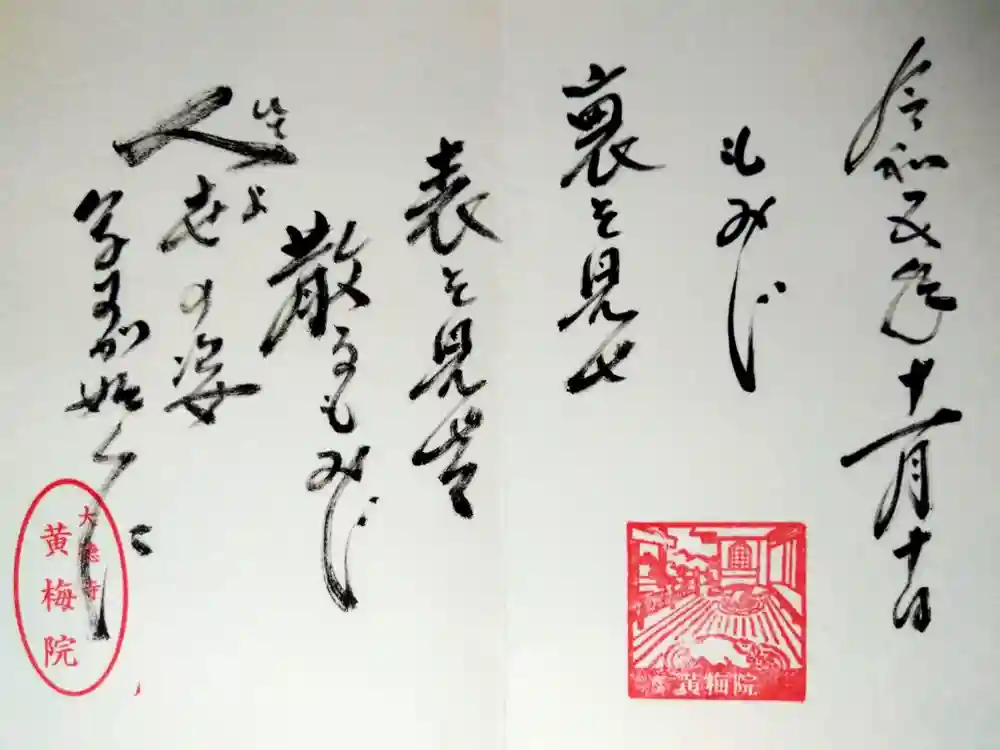 令和五年十一月十日
もみじ
裏を見せ
表を見せ
散るもみじ
人
世の姿
黄梅院
大徳寺
黄梅院